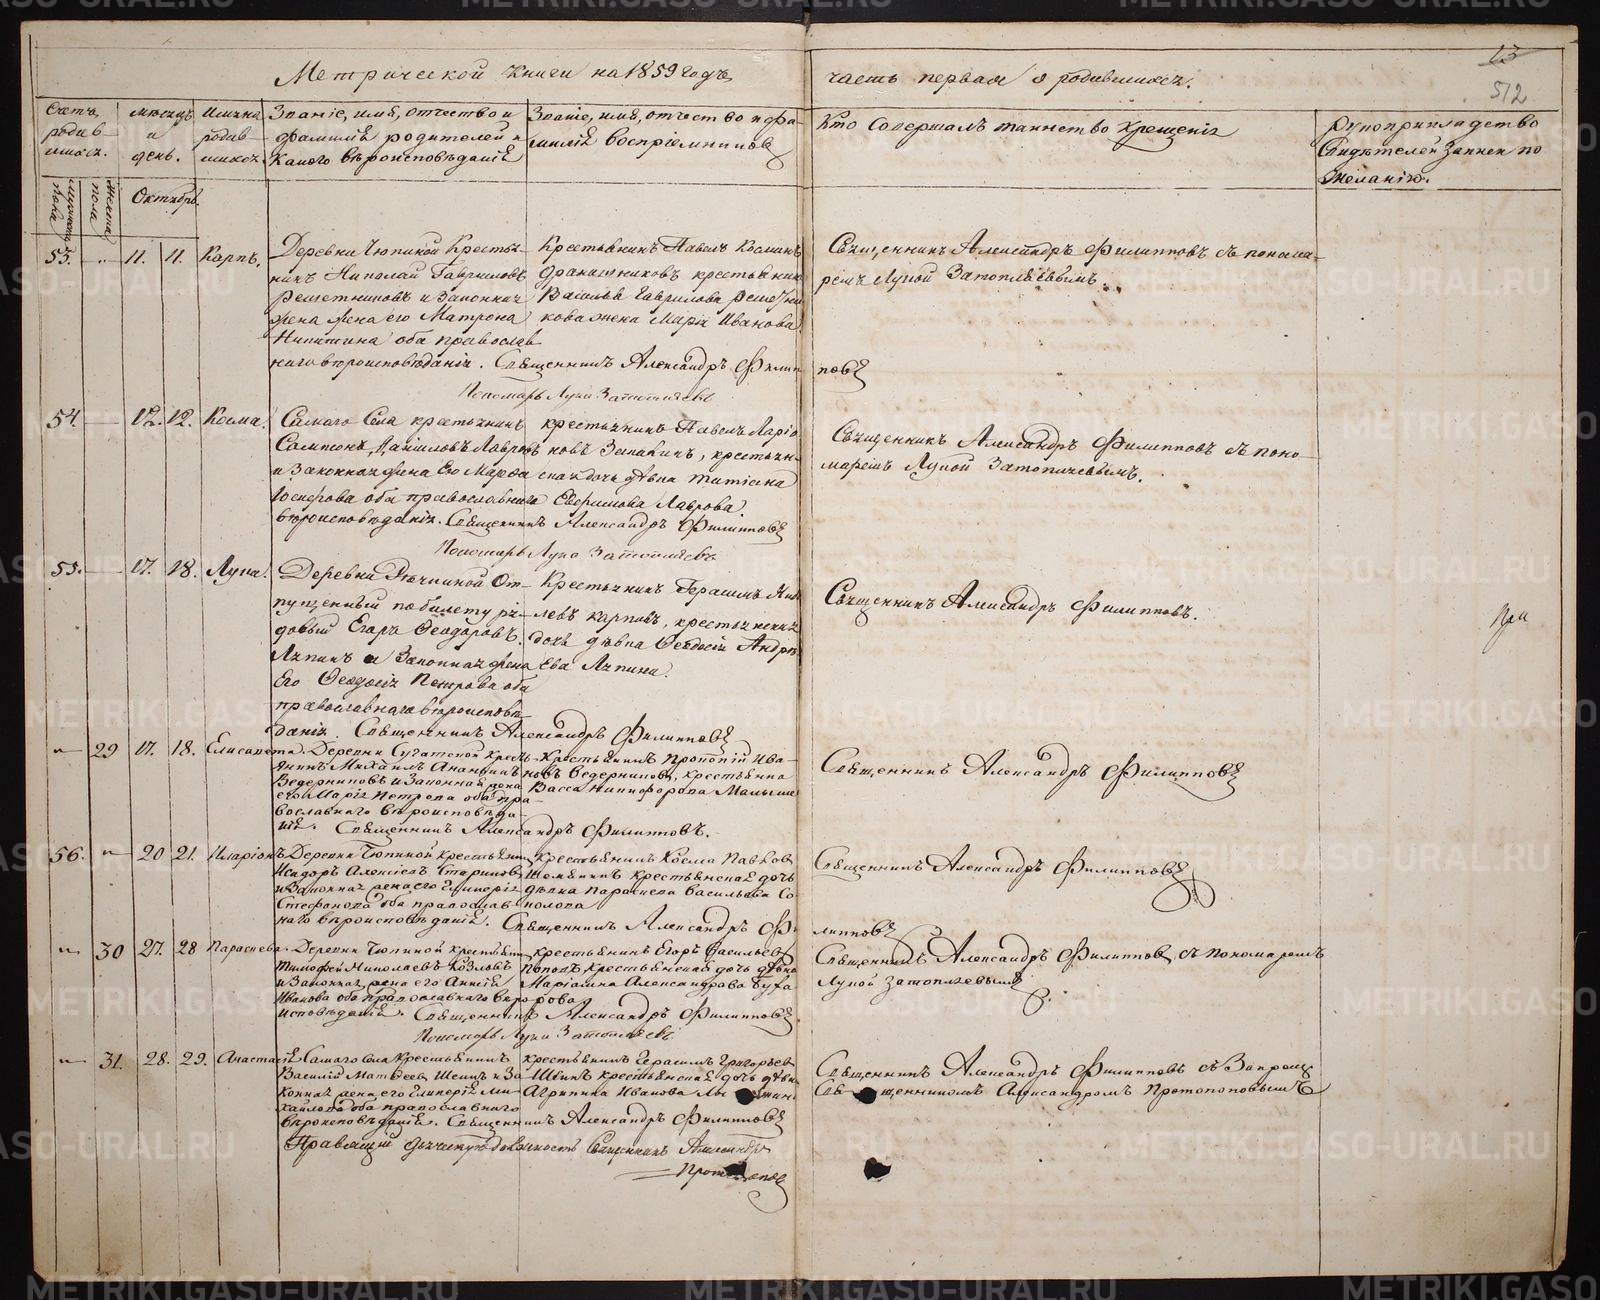 Метрической книги на 1859 годъ
часть первая о родившихся.
13
512
Счетъ родив-шихся.
Мѣсяцъ и день.
Имена родив-шихся
Званіе, имя, отчество и фамилія родителей и какого вѣроисповѣданія
Званіе, имя, отчество и фамилія воспріемниковъ
Кто совершалъ таинство крещенія
Рукоприкладство свидѣтелей записи по желанію.
мужеска пола
женска пола
Октябрь.
53. 11. 11. Карпъ.
Деревни Тюпиной Крестья-
нинъ Николай Гавриловъ
Решетниковъ и законная
жена жена его Матрона
Никитина оба православ
наго вѣроисповѣданія. Священникъ Александръ Филипповъ
Крестьянинъ Павелъ Косминъ
крестьянина
Василья Гаврилова Решетни
кова жена Марія Иванова
Священникъ Александръ Филипповъ съ понома-
ремъ Лукой Затопляевымъ.
Пономарь Лука Затопляевъ
54. 12. 12. Косма.
Самаго Села крестьянинъ
Сампсонъ Даниловъ Лавровъ
и законная жена его Марѳа
Іосифова оба православнаго
вѣроисповѣданія. Священникъ Александръ Филипповъ
крестьянинъ Павелъ Ларіо
новъ, крестьян-
ская дочь дѣвка Татіана
Евфимова Лаврова.
Священникъ Александръ Филипповъ съ поно-
маремъ Лукой Затопляевымъ.
Пономарь Лука Затопляевъ
55. 17. 18. Лука.
От-
пущенный по билету ря-
довый Егоръ Ѳеодоровъ
Ляпинъ и законная жена
Его Ѳеодосія Петрова оба
православнаго вѣроисповѣ
данія. Священникъ Александръ Филипповъ
Крестьянинъ Герасимъ
Карповъ, крестьянская
дочь дѣвка Ѳеодосія Андре
ева Ляпина.
Священникъ Александръ Филипповъ.
29 17. 18. Елисавета.
Деревни Сугатской Кресть-
янинъ Михаилъ Ананьинъ
Ведерниковъ и законная жена
его Марія Петрова оба пра-
вославнаго вѣроисповѣда-
нія. Священникъ Александръ Филипповъ.
Крестьянинъ Прокопій Ива-
новъ Ведерниковъ, крестьянка
Васса Никифорова
Священникъ Александръ Филипповъ
56. 20 21. Иларіонъ
Деревни Тюпиной крестьянинъ
Исидоръ Алексѣевъ Стариковъ
и законная жена его Гликерія
Стефанова оба православ
наго вѣроисповѣданія. Священникъ Александръ Филипповъ
крестьянинъ Косма Павловъ
крестьянская дочь
дѣвка Параскева Васильева Со
колова
Священникъ Александръ Филипповъ
30 27. 28 Параскева.
Деревни Тюпиной крестьянинъ
Тимофей Николаевъ Козловъ
и законная жена его Анисія
Иванова оба православнаго вѣро
исповѣданія. Священникъ Александръ Филипповъ
крестьянинъ Егоръ Васильевъ
Поповъ, крестьянская дочь дѣвка
Маріамна Александрова
Священникъ Александръ Филипповъ съ пономаремъ
Лукой Затопляевымъ
Пономарь Лука Затопляевъ
31. 28. 29. Анастасія
Самаго Села Крестьянинъ
Василій Матѳеевъ и за
конная жена, его Гликерія Ми-
хайлова оба православнаго
вѣроисповѣданія. Священникъ Александръ Филипповъ
крестьянинъ Герасимъ Григорьевъ
крестьянская дочь дѣвка
Агрипина Иванова
Священникъ Александръ Филипповъ съ
Священникомъ Александромъ Протопоповымъ
Правящій дьяческую должность Священникъ Александръ
Протопоповъ
METRIKI.GASO-URAL.RU